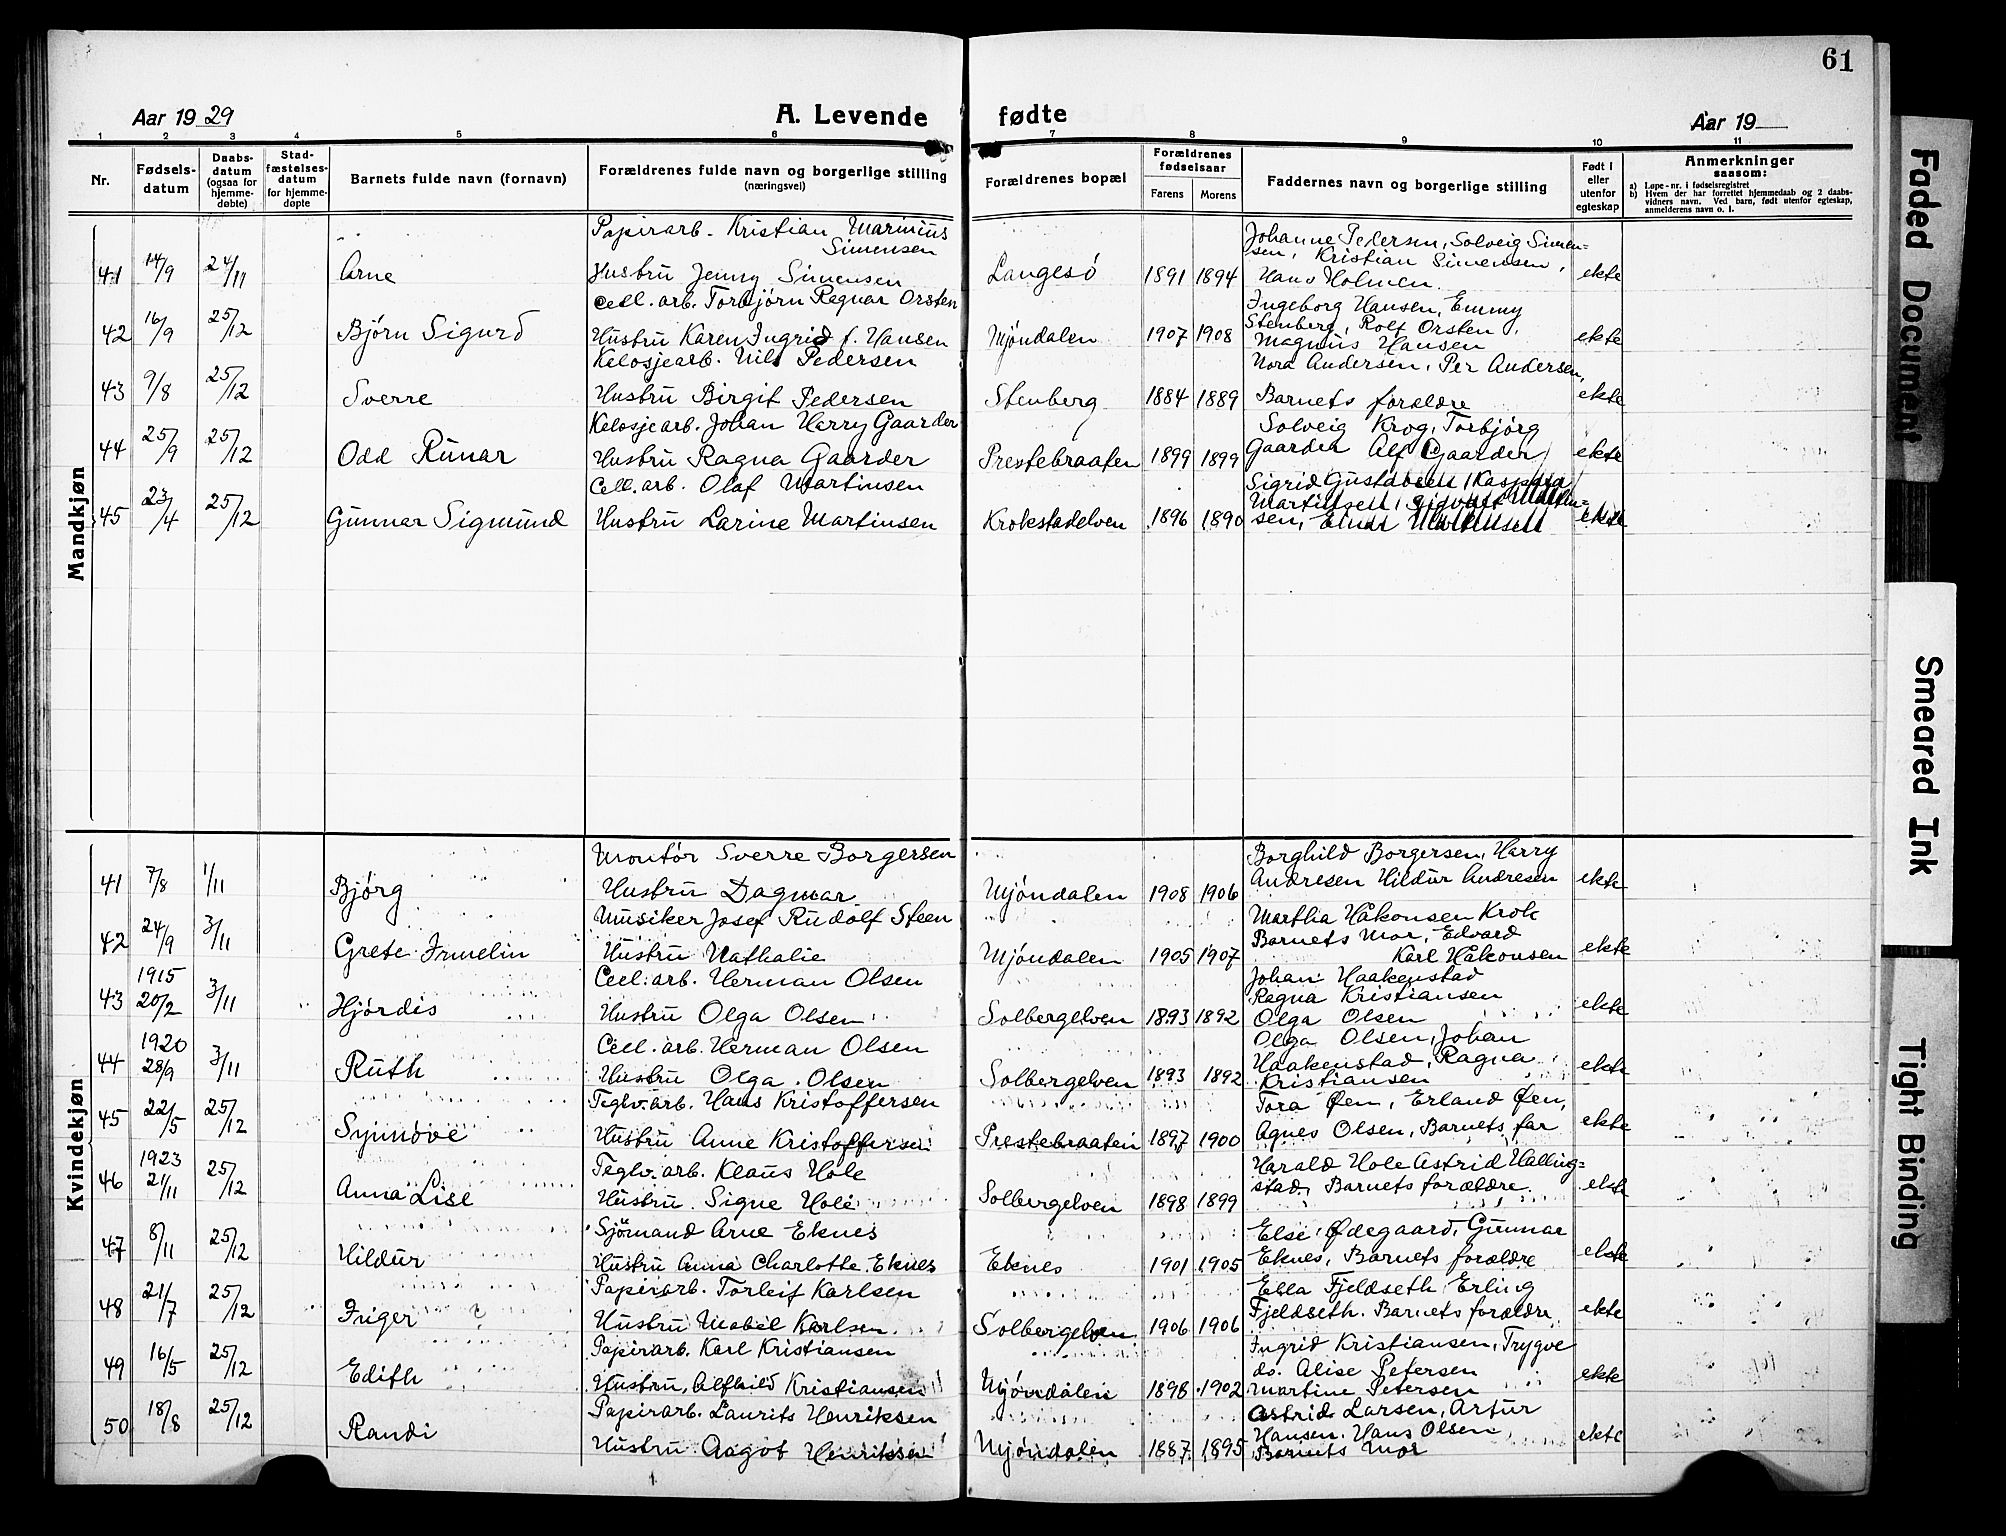 61
Aar 1929 A. Levende fødte Aar 19
1 2 3 4 5 6 7 8 9 10 11
Nr. Fødsels-datum Daabs-datum (ogsaa for hjemme-døbte) Stad-fæstelses-datum for hjemme-døpte Barnets fulde navn (fornavn) Forældrenes fulde navn og borgerlige stilling (næringsvei) Forældrenes bopæl Forældrenes fødselsaar Farens Morens Faddernes navn og borgerlige stilling Født i eller utenfor egteskap Anmerkninger saasom:
a) Løpe-nr. i fødselsregistret
b) Hvem der har forrettet hjemmedaab og 2 daabs-vidners navn. Ved barn, født utenfor egteskap, anmelderens navn o. l.
Mandkjøn
Papirarb. Kristian Marinius Simensen Johanne Pedersen, Solveig Simen=
41 14/9 24/11 Arne Hustru Jenny Simensen Langesö 1891 1894 sen, Kristian Simensen, Hans Holmen. ekte
Cell. arb. Torbjörn Ragnar Orsten Ingeborg Hansen, Emmy
42 16/9 25/12 Björn Sigurd Hustru Karen Ingrid f. Hansen Mjöndalen 1907 1908 Stenberg, Rolf Orsten, Magnus Hansen ekte
Kelosjearb. Nils Pedersen Nora Andersen, Per Andersen,
43 9/8 25/12 Sverre Hustru Birgit Pedersen Stenberg 1884 1889 Barnets forældre ekte
Kelosjearb. Johan Harry Gaarder Solveig Krog, Torbjörg
44 25/9 25/12 Odd Runar Hustru Ragna Gaarder Prestebraaten 1899 1899 Gaarder Alf Gaarder ekte
Cell. arb. Olaf Martinsen Sigrid Gustavsen, Kaspara
45 23/4 25/12 Gunnar Sigmund Hustru Larine Martinsen Krokstadelven 1896 1890 Martinsen, Sigvart Martin=sen, Einar Martinsen ekte
Kvindekjøn
Montör Sverre Borgersen Borghild Borgersen, Harry
41 7/8 1/11 Bjørg Hustru Dagmar Mjöndalen 1908 1906 Andresen Hildur Andresen ekte
Musiker Josef Rudolf Steen Martha Håkonsen Krok
42 24/9 3/11 Grete Irmelin Hustru Nathalie Mjöndalen 1905 1907 Barnets Mor, Edvard Karl Håkonsen ekte
1915 Cell. arb. Herman Olsen Johan Haakenstad
43 20/2 3/11 Hjördis Hustru Olga Olsen Solbergelven 1893 1892 Ragna Kristiansen Olga Olsen ekte
1920 Cell. arb. Herman Olsen Olga Olsen, Johan
44 28/9 3/11 Ruth Hustru Olga Olsen Solbergelven 1893 1892 Haakenstad, Ragna Kristiansen ekte
Teglv. arb. Hans Kristoffersen Tora Øen, Erland Øen,
45 22/5 25/12 Synnöve Hustru Anne Kristoffersen Prestebraaten 1897 1900 Agnes Olsen, Barnets far ekte
1923 Teglv. arb. Klaus Hole Harald Hole Astrid Halling=
46 21/11 25/12 Anna Lise Hustru Signe Hole Solbergelven 1898 1899 stad, Barnets forældre ekte
Sjömand Arne Eknes Else Ødegaard, Gunnar
47 8/11 25/12 Hildur Hustru Anna Charlotte Eknes Eknes 1901 1905 Eknes, Barnets forældre ekte
Papirarb. Torleif Karlsen Ella Fjeldseth, Erling
48 21/7 25/12 Inger Hustru Mabel Karlsen Solbergelven 1906 1906 Fjeldseth. Barnets forældre ekte
Papirarb. Karl Kristiansen Ingrid Kristiansen, Trygve
49 16/5 25/12 Edith Hustru Alfhild Kristiansen Mjöndalen 1898 1902 do. Alise Petersen Martine Petersen ekte
Papirarb. Laurits Henriksen Astrid Larsen, Artur
50 18/8 25/12 Randi Hustru Aagot Henriksen Mjöndalen 1887 1895 Hansen, Hans Olsen, Barnets Mor ekte
Faded Document
Smeared Ink
Tight Binding